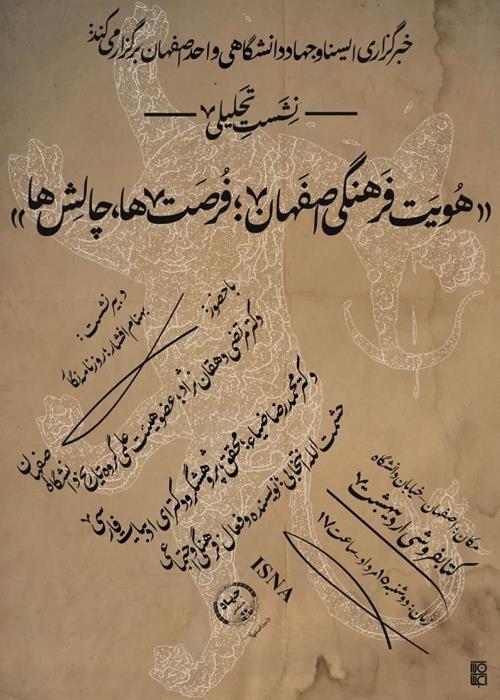 خبرگزاری ایسنا و جهاد دانشگاهی واحد اصفهان برگزار می‌کند:
نشست تحلیلی
«هویت فرهنگی اصفهان؛ فرصت‌ها، چالش‌ها»
دبیر نشست:
بهنام افشار: روزنامه‌نگار
با حضور:
دکتر مرتضی دهقان نژاد: عضو هیئت علمی گروه تاریخ دانشگاه اصفهان
دکتر محمدرضا ضیاء: محقق، پژوهشگر و دکترای ادبیات فارسی
حشمت الله انتخابی: نویسنده و فعال فرهنگی و اجتماعی
مکان: اصفهان - خیابان دانشگاه
کتابفروشی اردیبهشت
زمان: دوشنبه ۱۵ مرداد، ساعت ۱۷
ISNA
جهاد